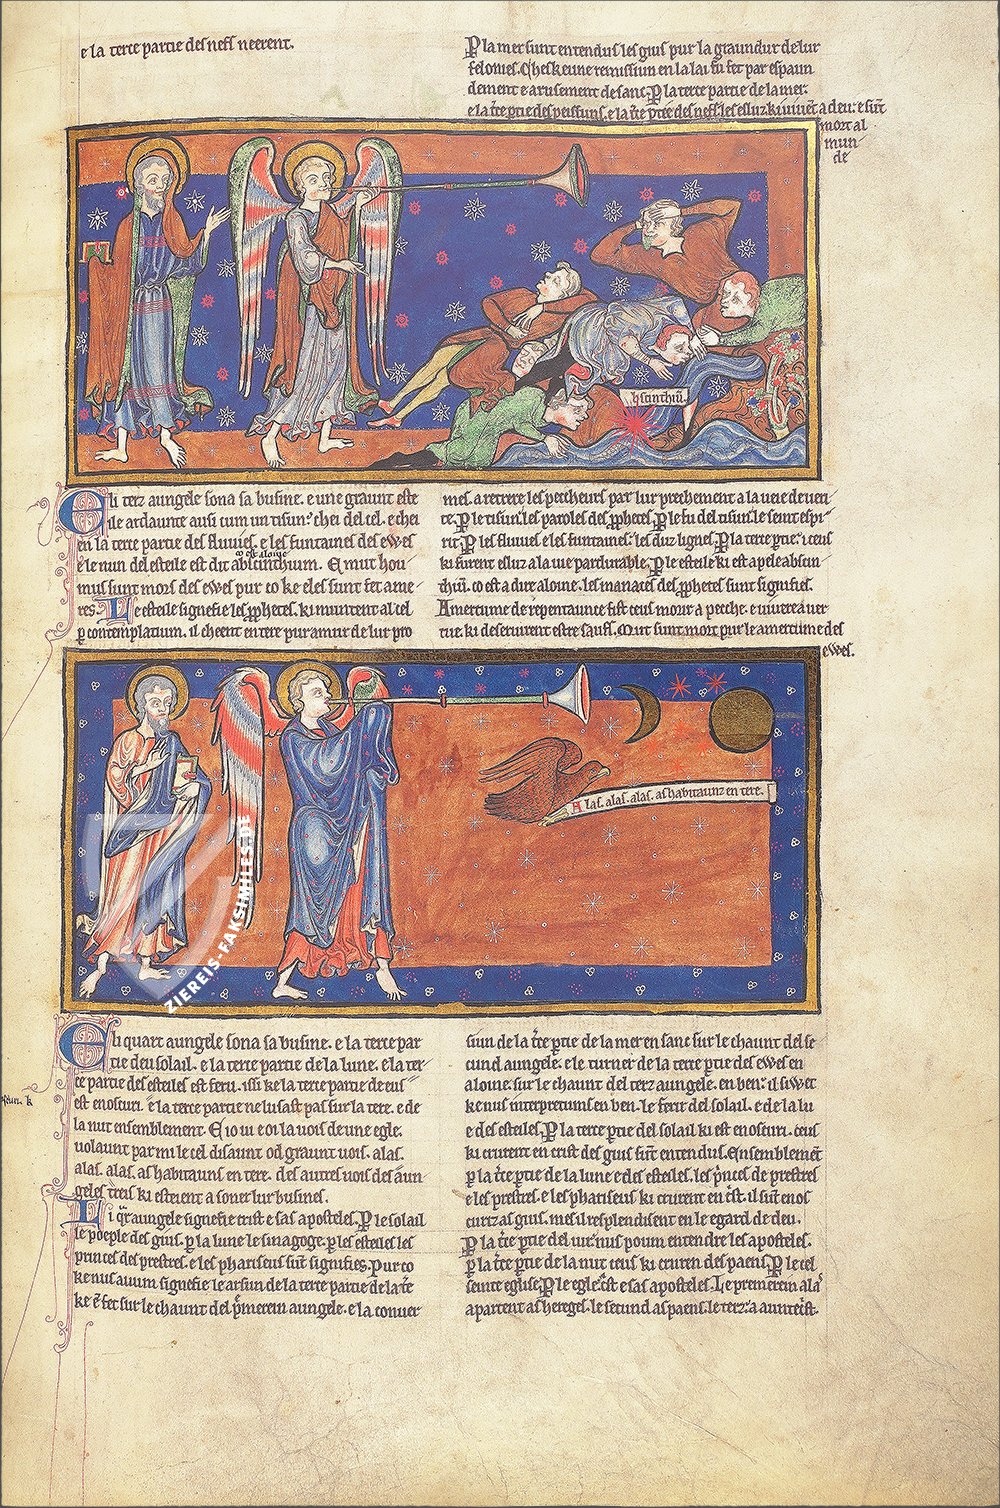 e la terce partie des nefs neerent.
P la mer sunt entendus les gius pur la graundur de lur
felonies. Cheskeune remissiun en la lai fu fet par espaun
dement e arusement de sanc. P la terce partie de la mer.
e la t'ce p'tie des peissuns. e la t'ce p'tie des nefs. les esluz ki uiuent a deu. e sunt
mort al
mun
de
hscinthiū.
El i terz aungele sona sa busine. e une graunt este
ile ardaunte ausi cum un tisun. chei del cel. e chei
en la terce partie des fluuies. e les funtaines des ewes
co est aloigne
e le nun del esteile est dit abscinchium. E mut hou
mus sunt mors des ewes pur co ke eles sunt fet ame
res. Le esteile signefie les pphetes. ki muntent al cel
p contemplatium. il cheent en tere pur amur de lur pro
mes. a retrere les pecheurs par lur prechement a la ueie de ueri
te. P le tisun. les paroles des pphetes. P le fu del tisun. le seint espi
rit. P les fluuies e les funtaines. les duz lignes. P la terce p'tie. ceus
ki furent esluz a la uie pardurable. P le esteile ki est apele absin
thiū. co est a dire aloine. les manaces des pphetes sunt signifies.
Amertume de repentaunce fist ceus morir a peche. e uiuere a uer
tue. ki deseruirent estre saufs. Mut sunt mort pur le amertume des
ewes.
Alas. alas. alas. as habitaunz en tere.
El i quart aungele sona sa busine. e la terce par
tie deu solail. e la terce partie de la lune. e la ter
ce partie des esteiles est feru. issi ke la terce partie de eus
est enoscuri. e la terce partie ne lusast pas sur la tere. e de
la nuit ensemblement. E io ui e oi la uois de une egle.
uolaunt par mi le cel disaunt od graunt uois. alas.
alas. alas. as habitauns en tere. des autres uois des aun
geles treis ki esteient a soner lur busines.
Li q'r aungele signefie crist e sas aposteles. P le solail
le poeple des gius. p la lune le sinagoge. p les esteiles les
princes des prestres. e les phariseus sunt signifies. Pur co
ke nus auum signefie le arsun de la terce partie de la t're
ke est fet sur le chaunt del p'merein aungele. e la conuer
siun de la t'ce p'tie de la mer en sanc sur le chaunt del se
cund aungele. e le turner de la terce p'tie des ewes en
aloine. sur le chaunt del terz aungele. en ben. il siwet
ke nus interpretums en ben. le ferir del solail. e de la lu
e des esteiles. P la terce p'tie del solail ki est enoscuri. ceus
ki crurent en crist des gius sunt entendus. Ensemblemēt
p la t'ce p'tie de la lune e des esteiles. les p'nces de prestres
e les prestres. e les phariseus ki crurent en c'st. il sunt enos
curiz as gius. mes il resplendisent en le egard de deu.
P la t'ce p'tie del iur. nus poum entendre les aposteles.
p la t'ce p'tie de la nuit ceus ki cruren des paens. P le cel
seinte eglise. P le egle. c'st e sas aposteles. Le premerein ala'
apartent as hereges. le secund as paens. le terz a auntecrist.
ZIEREIS-FAKSIMILES.DE